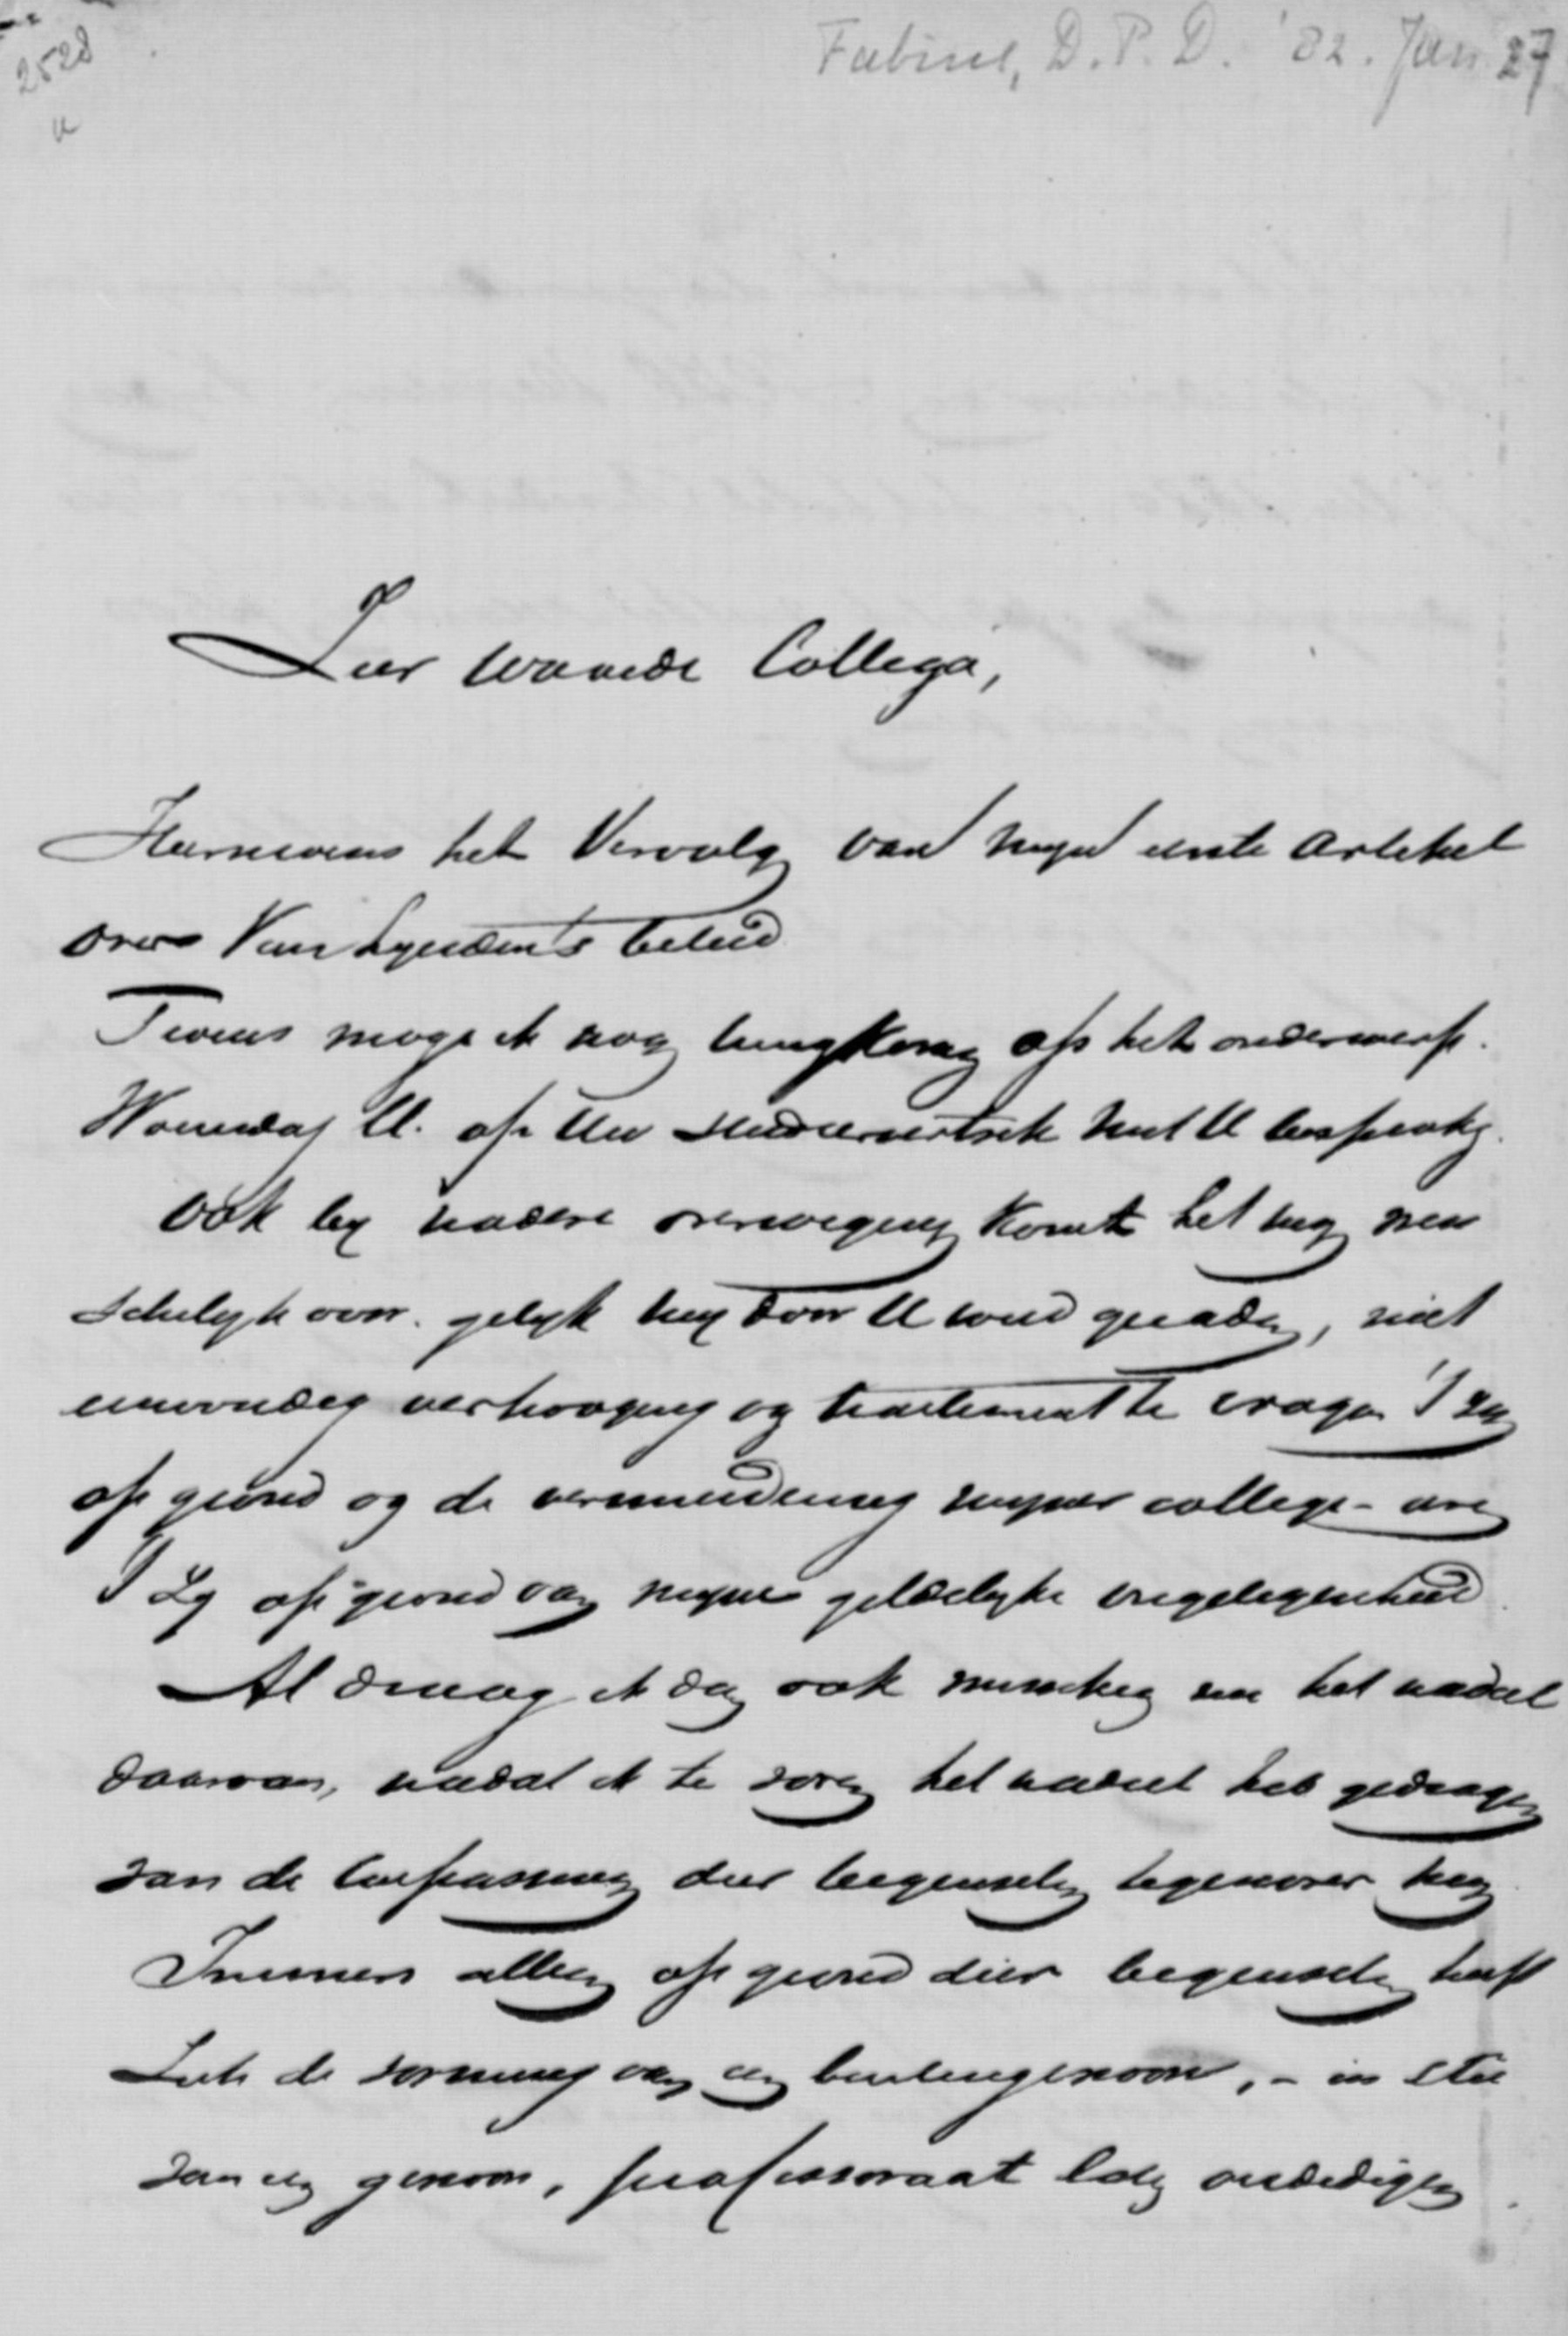 2528
Fabius, D.P.D. '82. Jan 27
Zeer waarde Collega,
Hiernevens het Vervolg van mijn eerste artikel
over Van Lynden's beleid
Tevens moge ik nog terugkomen op het onderwerp.
Woensdag ll. op Uw studeervertrek met U besproken.
Ook by nadere overweging komt het my
voor. gelyk my door U werd geraden, niet
eenvoudig verhooging van traktement te vragen 't zy
op grond van de vermeerdering myner college-uren
't zy op grond van myne geldelyke ongelegenheid.
Al draag ik dan ook misschien nu het nadeel
daarvan, nadat ik te voren het nadeel heb gedragen
van de toepassing dier beginselen tegenover my.
Immers alleen op grond dier beginselen heeft
de vorming van een buitengewoon, - in stee
van een gewoon, professoraat verdedigen.